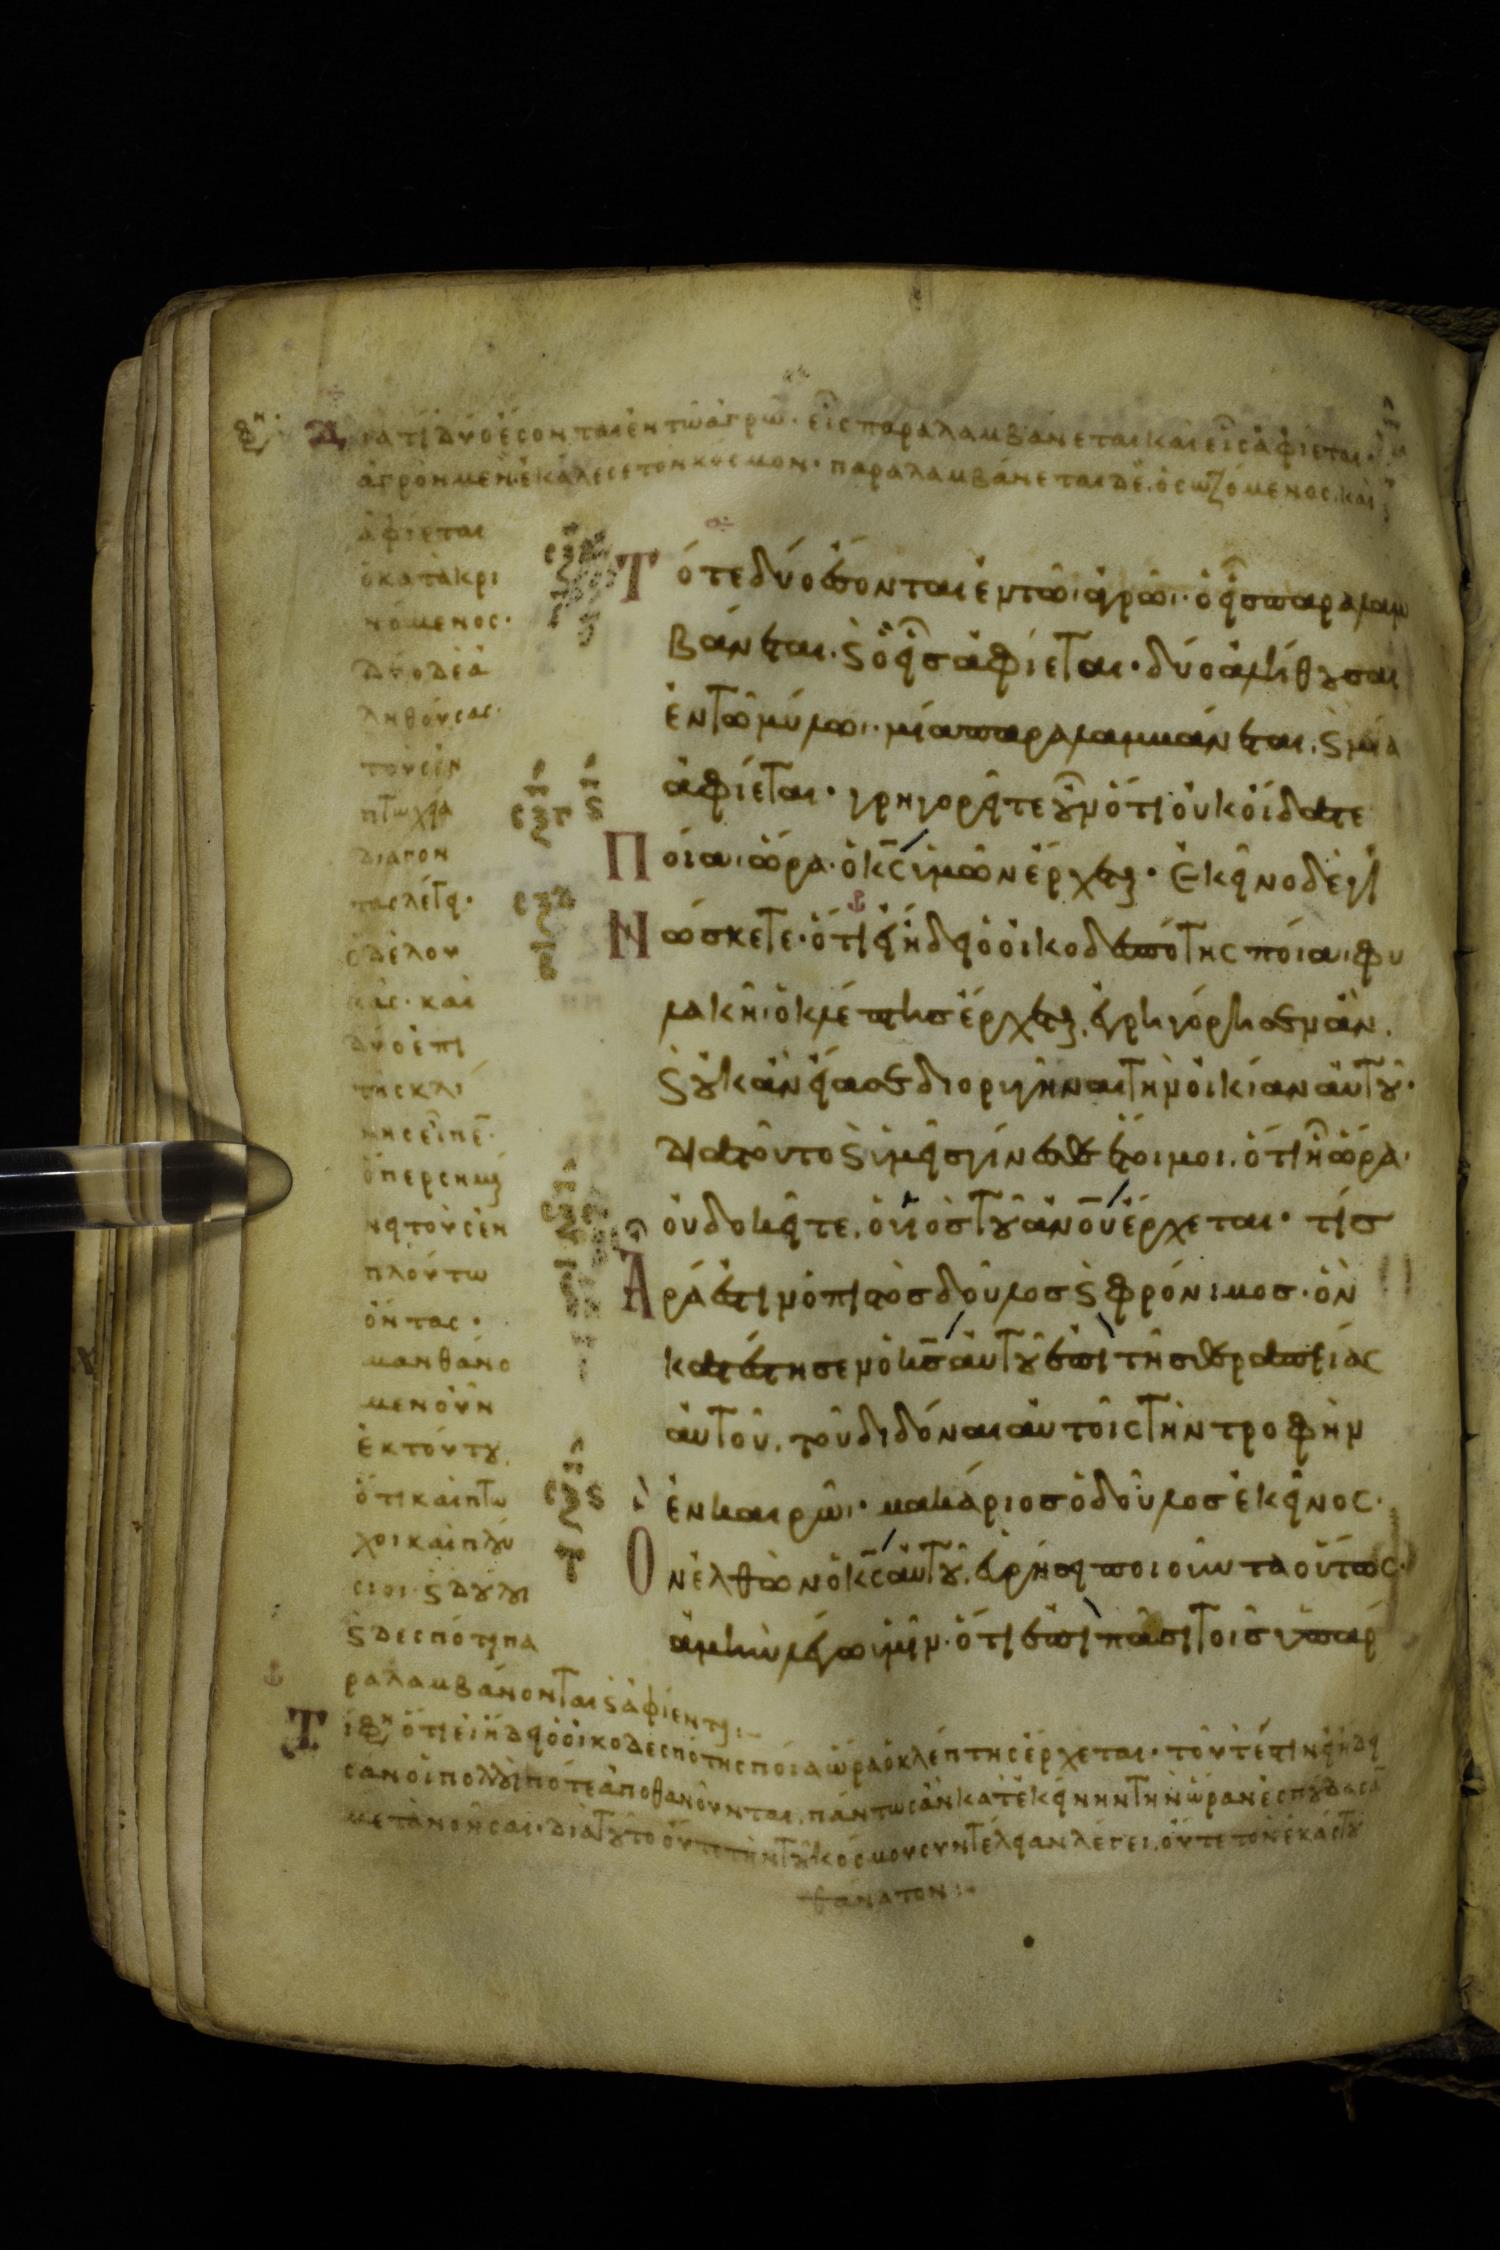 Διατί δύο ἔσονται ἐν τῶ ἀγρῶ· εἷς παραλαμβάνεται καὶ εἷς ἀφίεται·
ἀγρὸν μὲν ἐκάλεσε τὸν κόσμον· παραλαμβάνεται δὲ, ὁ σωζόμενος. καὶ
ἀφίεται
ὁ κατακρι
νόμενος·
δύο δὲ ἀ
ληθούσας·
τοὺς ἐν
πτωχεία
διάγον
τας λέγει·
καὶ
δύο ἐπὶ
τῆς κλί
νης εἶπε·
ὅπερ σημαί
νει τοὺς ἐν
πλούτω
ὄντας·
μανθάνο
μεν οὖν
ἐκ τούτου
ὅτι καὶ πτω
χοὶ καὶ πλού
σιοι· ϛ δοῦλοι
ϛ δεσπόται πα
ραλαμβάνονται ϛ ἀφίενται:–
Τότε δύο ἔσονται ἐν τῶι ἀγρῶι· ὁ εἷς παραλαμ
βάνεται. ϛ ὁ εἷς ἀφίεται· δύο ἀλήθουσαι
ἐν τῶ μύλωι· μία παραλαμβάνεται, ϛ μία
ἀφίεται· γρηγορεῖτε οὖν ὅτι οὐκ οἴδατε
Ποίαι ὥρα· ὁ κς ὑμῶν ἔρχεται· ἐκεῖνο δὲ γι
Νώσκετε· ὅτι εἰ ἤδει ὁ οἰκοδεσπότης ποίαι φυ
λακῆι ὁ κλέπτης ἔρχεται, ἐγρηγόρησεν ἂν.
ϛ οὐκ ἂν εἴασεν διορυγῆναι τὴν οἰκίαν αὐτοῦ·
Διατοῦντο ϛ ὑμεῖς γίνεσθε ἕτοιμοι. ὅτι ἧ ὥρα·
οὐ δοκεῖτε, ὁ υς τοῦ ανου ἔρχεται· τίς
Ἄρα ἐστιν ὁ πιστὸς δοῦλος ϛ φρόνιμος· ὃν
κατέστησεν ὁ κς αὐτοῦ ἐπὶ τῆς θεραπείας
αὐτοῦ, τοῦ διδόναι αὐτοῖς τὴν τροφὴν
ἐν καιρῶι· μακάριος ὁ δοῦλος ἐκεῖνος·
Ὃν ἐλθὼν ὁ κς αὐτοῦ, εὑρήσει ποιοῦντα οὕτως·
ἀμὴν λέγω ὑμῖν· ὅτι ἐπὶ πᾶσι τοῖς ὑπαρ
ὅτι εἰ ἤδει ὁ οἰκοδεσπότης ποία ὥρα ὁ κλέπτης ἔρχεται· τοῦτέστιν εἰ ἤδει
σαν οἱ πολλοὶ πότε ἀποθανοῦνται, πάντως ἂν κατ' ἐκείνην τὴν ὥραν ἐσπούδασαν
μετανοῆσαι· διὰ τοῦτο οὔτε τὴν τοῦ κόσμου συντέλειαν λέγει, οὔτε τὸν ἑκάστου
θάνατον:–